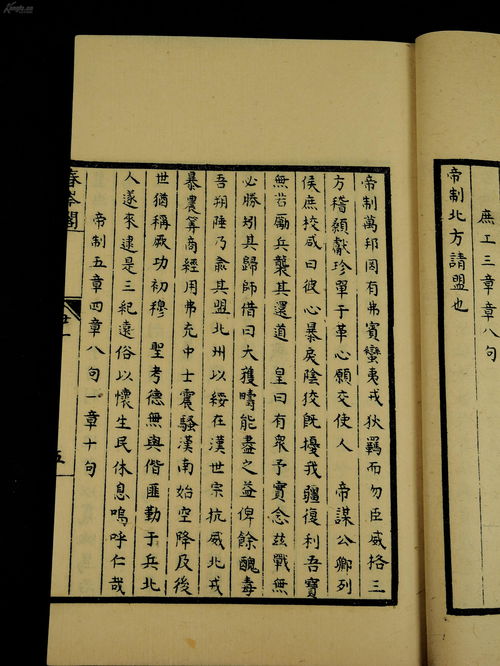 庶工三章章八句
帝制北方請盟也
帝制萬邦罔有弗賓蠻夷戎狄羈而勿臣威格三
方稽顙獻珍單于革心願交使人　帝謀公卿列
侯庶校咸曰彼心暴戾陰狡既擾我疆復利吾寶
無若勵兵襲其還道　皇曰有眾予實念茲戰無
必勝矧其歸師借曰大獲疇能盡之益俾餘醜毒
吾朔陲乃肅其盟北州以綏在漢世宗抗威北戎
暴農筭商經用弗充中士震騷漢南始空降及後
世猶稱厥功初穆　聖考德無與偕匪勤于兵北
人遂來逮是三紀遠俗以懷生民休息嗚呼仁哉
帝制五章四章八句一章十句
春岑閣
五